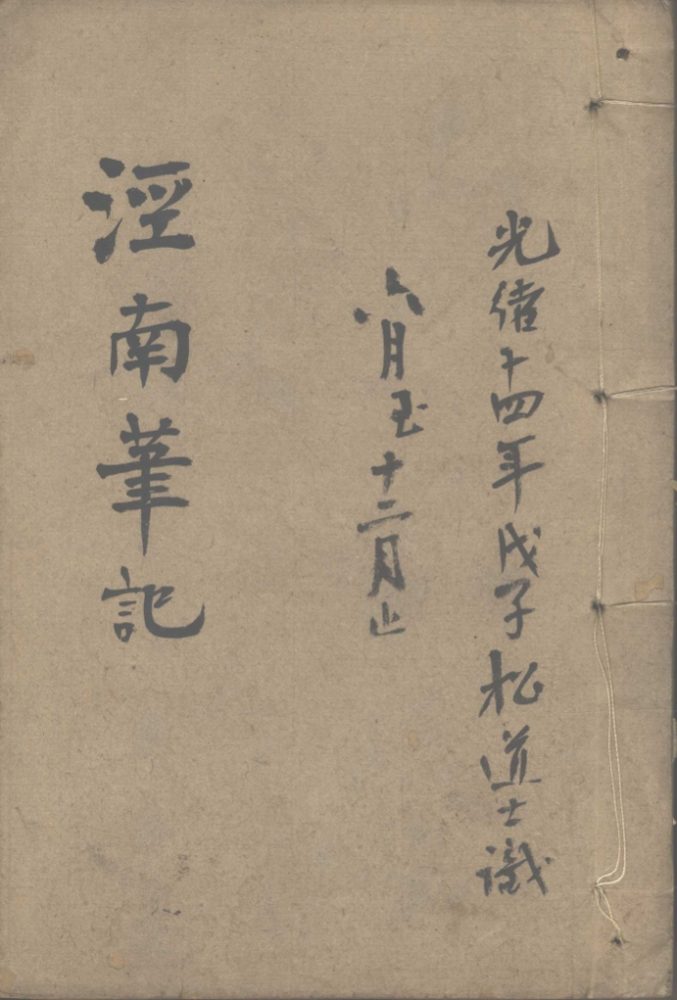 光緒十四年戊子松道士識
六月至十二月止
涇南筆記